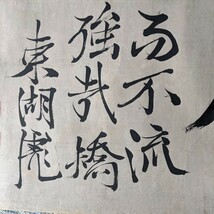 而不流
強哉矯
東湖彪